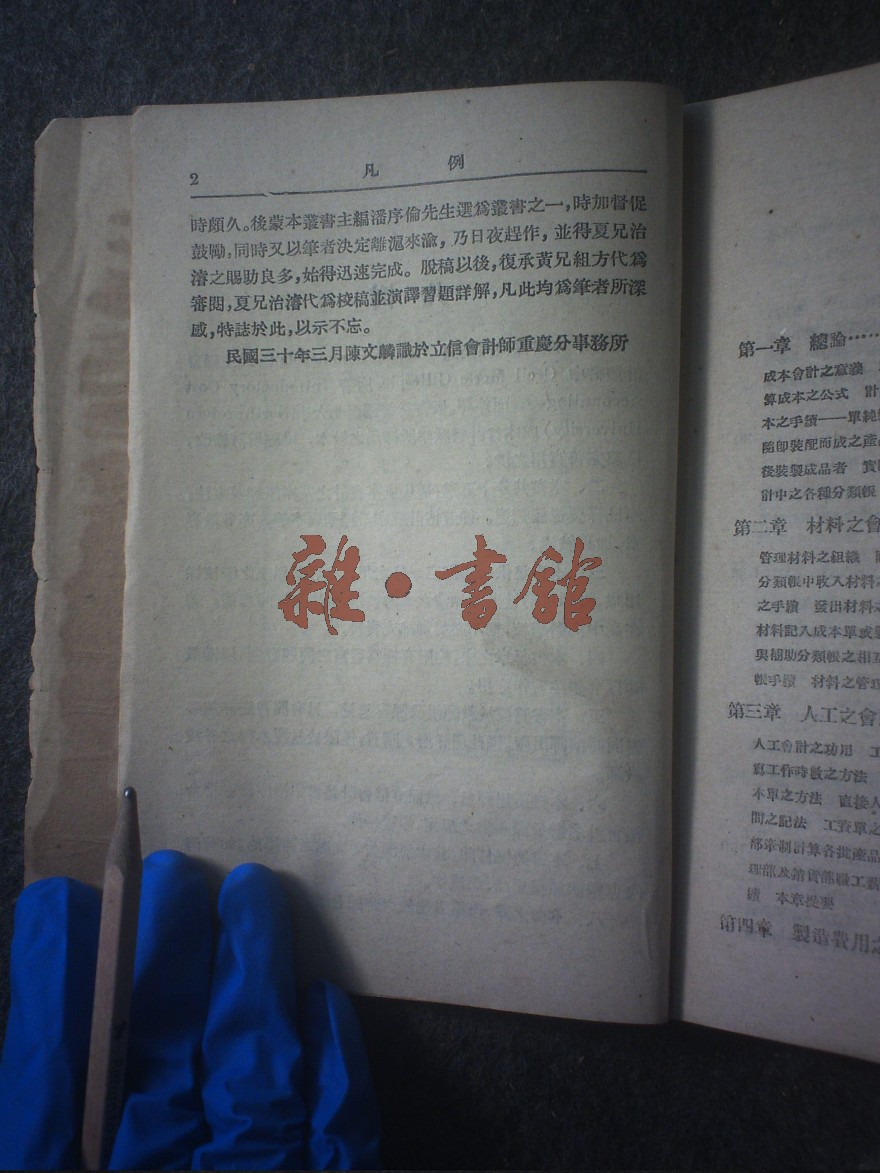 2
凡例
時頗久。後蒙本叢書主編潘序倫先生選爲叢書之一，時加督促
鼓勵，同時又以筆者決定離滬來渝，乃日夜趕作，並得夏兄治
濬之賜助良多，始得迅速完成。脫稿以後，復承黃兄組方代爲
審閱，夏兄治濬代爲校稿並演譯習題詳解，凡此均爲筆者所深
感，特誌於此，以示不忘。
民國三十年三月陳文麟識於立信會計師重慶分事務所
雜・書館
第一章　總論……
成本會計之意義
算成本之公式　計
本之手續——單純
隨即裝配而成之產
後裝製成品者　實
計中之各種分類帳
第二章　材料之會
管理材料之組織
分類帳中收入材料
之手續　發出材料
材料記入成本單或
與補助分類帳之相互
帳手續　材料之管理
第三章　人工之會
人工會計之功用　工
寫工作時數之方法
本單之方法　直接人
間之記法　工資單之
部牽制計算各批產品
理部及銷貨部職工
續　本章提要
第四章　製造費用之